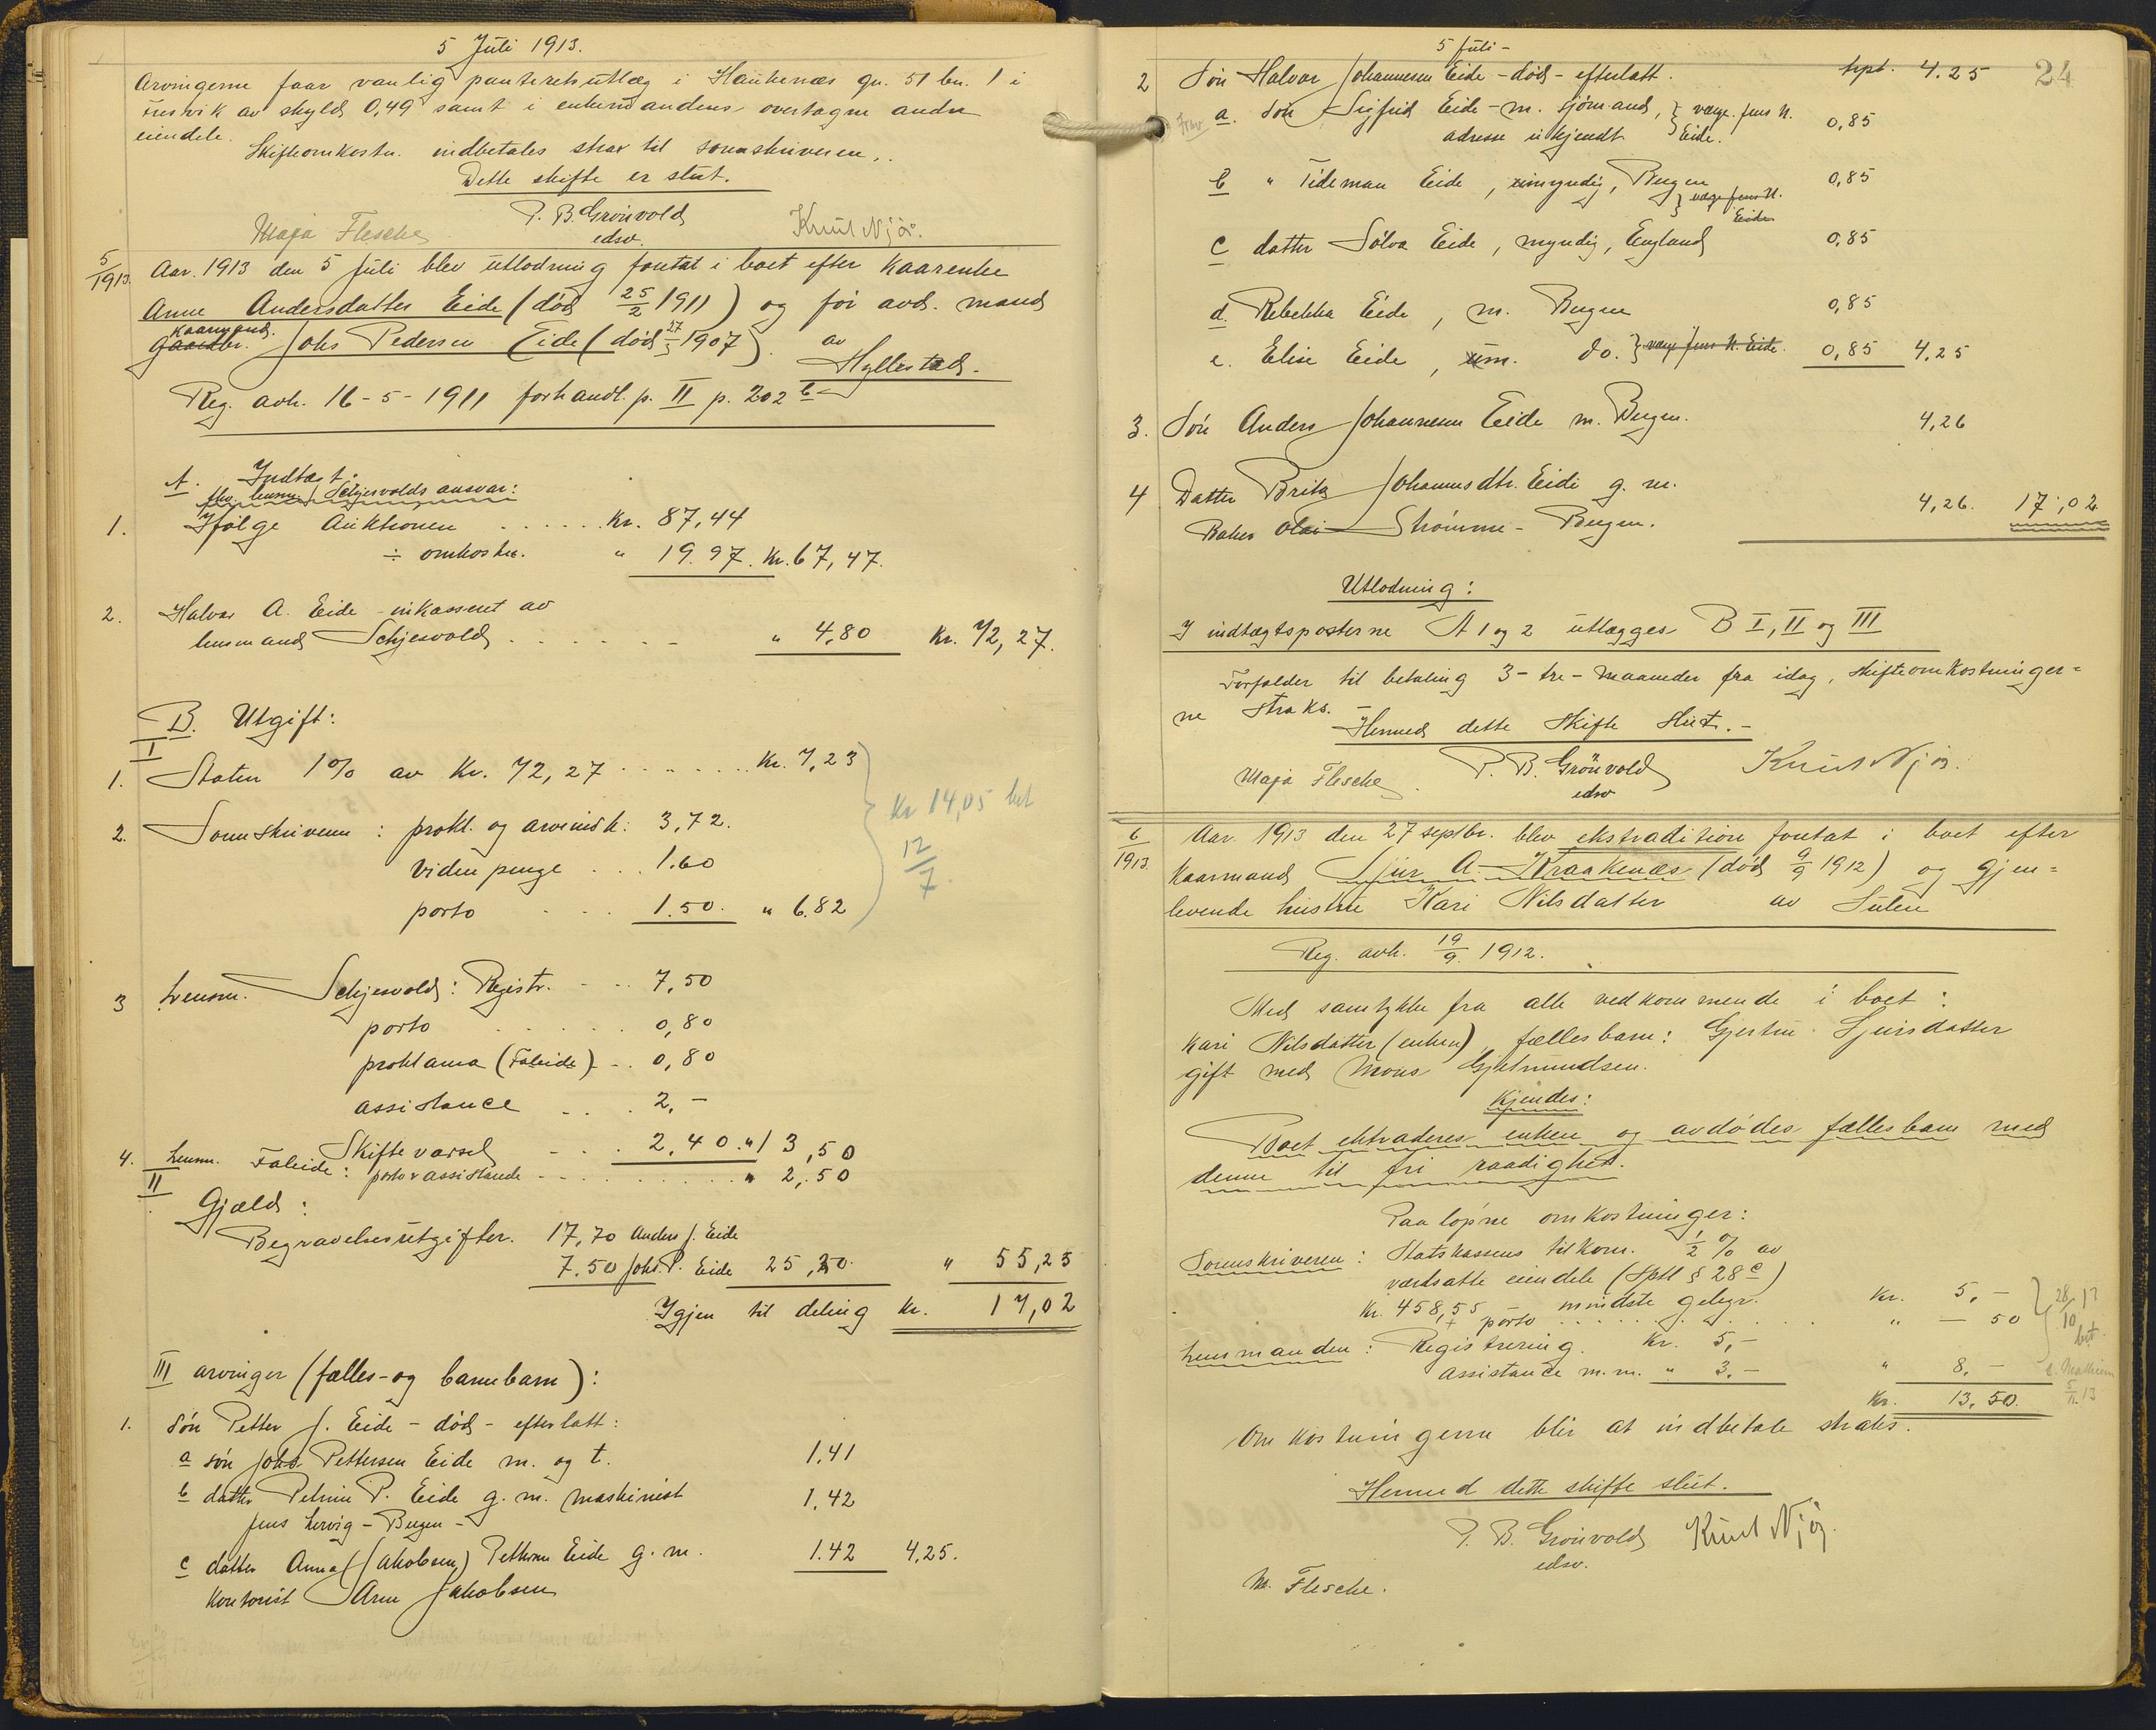 5 Juli 1913.
Arvingerne faar vanlig panteretsutlæg i Haukenæs gn. 51 bn. 1 i
av skyld 0,49 samt i enkemandens overtagne andre
eiendele.
Skifteomkostn. indbetales strax til sorenskriveren.
Dette skifte er slut.
P. B. Grønvold
edsv.
Maja Flesche
Knut Njøs.
5/1913. Aar 1913 den 5 Juli blev utlodning foretat i boet efter kaarenke
Anne Andersdatter Eide (død 25/2 1911) og før avd. mand
kaarmand.
gaardbr. Johs Pedersen Eide (død 27/5 1907) av
Hyllestad.
Reg. avh. 16-5-1911 forhandl. p. II p. 202 b
A. Indtægt:
fhv. lensm. Schjesvolds ansvar:
1. Ifølge Auktionen ...... Kr. 87,44
÷ omkostn. " 19.97. Kr. 67,47.
2. Halvar A. Eide - inkasseret av
lensmand Schjesvold ...... " 4,80 Kr. 72,27.
B. Utgift:
I
1. Staten 1% av Kr. 72,27 ....... Kr. 7,23
2. Sorenskriveren: prokl. og arveindk: 3,72.
vidnepenge ... 1.60
porto ... 1.50. " 6.82
Kr 14,05 bet
12/7.
3 Lensm. Schjesvold: Registr. ... 7,50
porto ...... 0,80
proklama (Faleide) ... 0,80
assistance ... 2,-
Skiftevarsel ... 2,40. " 13,50
4. Lensm. Faleide: porto v assistance ......... " 2,50
II
Gjæld:
Begravelsesutgifter. 17,70 Anders J. Eide
7.50 Johs. P. Eide 25,20. " 55,25
Igjen til deling Kr. 17,02
III arvinger (fælles- og barnebarn):
1. Søn Petter J. Eide - død - efterlatt:
a søn Johs Pettersen Eide m. og t. 1.41
b datter Petrine P. Eide g. m. maskinist 1,42
Jens Lervig - Bergen -
c datter Anna (Jakobsen) Petterson Eide g. m. 1.42 4,25.
kontorist Arne Jakobsen
24
5 Juli -
2 Søn Halvor Johannesen Eide - død - efterlatt. trpt. 4.25
a. søn Sigfrid Eide - m. sjømand, } værge. Jens H. 0,85
adresse ukjendt } Eide.
b " Tideman Eide, umyndig, Bergen 0,85
} værge Jens H.
Eide
c datter Solva Eide, myndig, England 0,85
d. Rebekka Eide, m. Bergen 0,85
e. Elise Eide, um. do. } værge Jens H. Eide. 0,85 4,25
3. Søn Anders Johannesen Eide m. Bergen. 4,26
4 Datter Brita Johannesdtr. Eide g. m.
Baker Olai Strømme - Bergen. 4,26. 17,02
Utlodning:
I indtægtsposterne A 1 og 2 utlægges B I, II og III
Forfalder til betaling 3- tre - maaneder fra idag, skifteomkostninger=
ne straks. -
Hermed dette skifte slut. -
Maja Flesche. P. B. Grønvold Knut Njøs.
edsv
6/1913. Aar 1913 den 27 septbr. blev ekstradition foretat i boet efter
kaarmand Sjur A. Kraakenæs (død 9/9 1912) og gjen=
levende hustru Kari Nilsdatter av Sulen
Reg. avh. 19/9. 1912.
Med samtykke fra alle vedkommende i boet:
Kari Nilsdatter (enken), fællesbarn: Gjertine Sjursdatter
gift med Mons Gjertmundsen.
Kjendes:
Boet ekstraderes enken og avdødes fællesbarn med
denne til fri raadighet.
Paaløpne omkostninger:
Sorenskriveren: Statskassens tilkom. 1/2 % av
værdsatte eiendele (Sptl § 28 c)
Kr. 458,55 - mindste gebyr. Kr. 5,-
+ porto ........ " - 50
Lensmanden: Registrering. Kr. 5,-
assistance m.m. " 3,- " 8,-
Kr. 13,50.
28/10 13
bet.
Omkostningerne blir at indbetale straks.
Hermed dette skifte slut.
P. B. Grønvold Knut Njøs.
edsv.
M. Flesche.